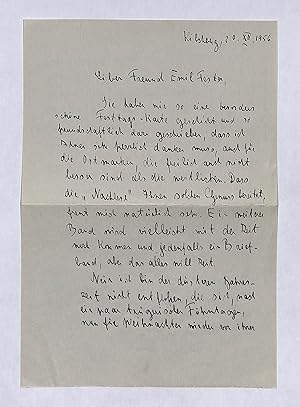 Kilchberg, 20. XII. 1954
Lieber Freund Emil Fester,
Sie haben mir so eine besonders
schöne Festtags-Karte geschickt und so
freundschaftlich dazu geschrieben, dass ich
Ihnen sehr herzlich danken muss, auch für
die Ostmarken, die freilich auch nicht
besser sind als die westlichen. Dass
die „Nachlese" Ihnen solchen Genuss bereitet,
freut mich natürlich sehr. Ein weiterer
Band wird vielleicht mit der Zeit
noch kommen und jedenfalls ein Brief-
band, aber das alles will Zeit.
Nein ich bin der düsteren Jahres-
zeit nicht entflohen, die sich, nach
ein paar trügerischen Föhntagen,
nun für Weihnachten wieder von ihrer